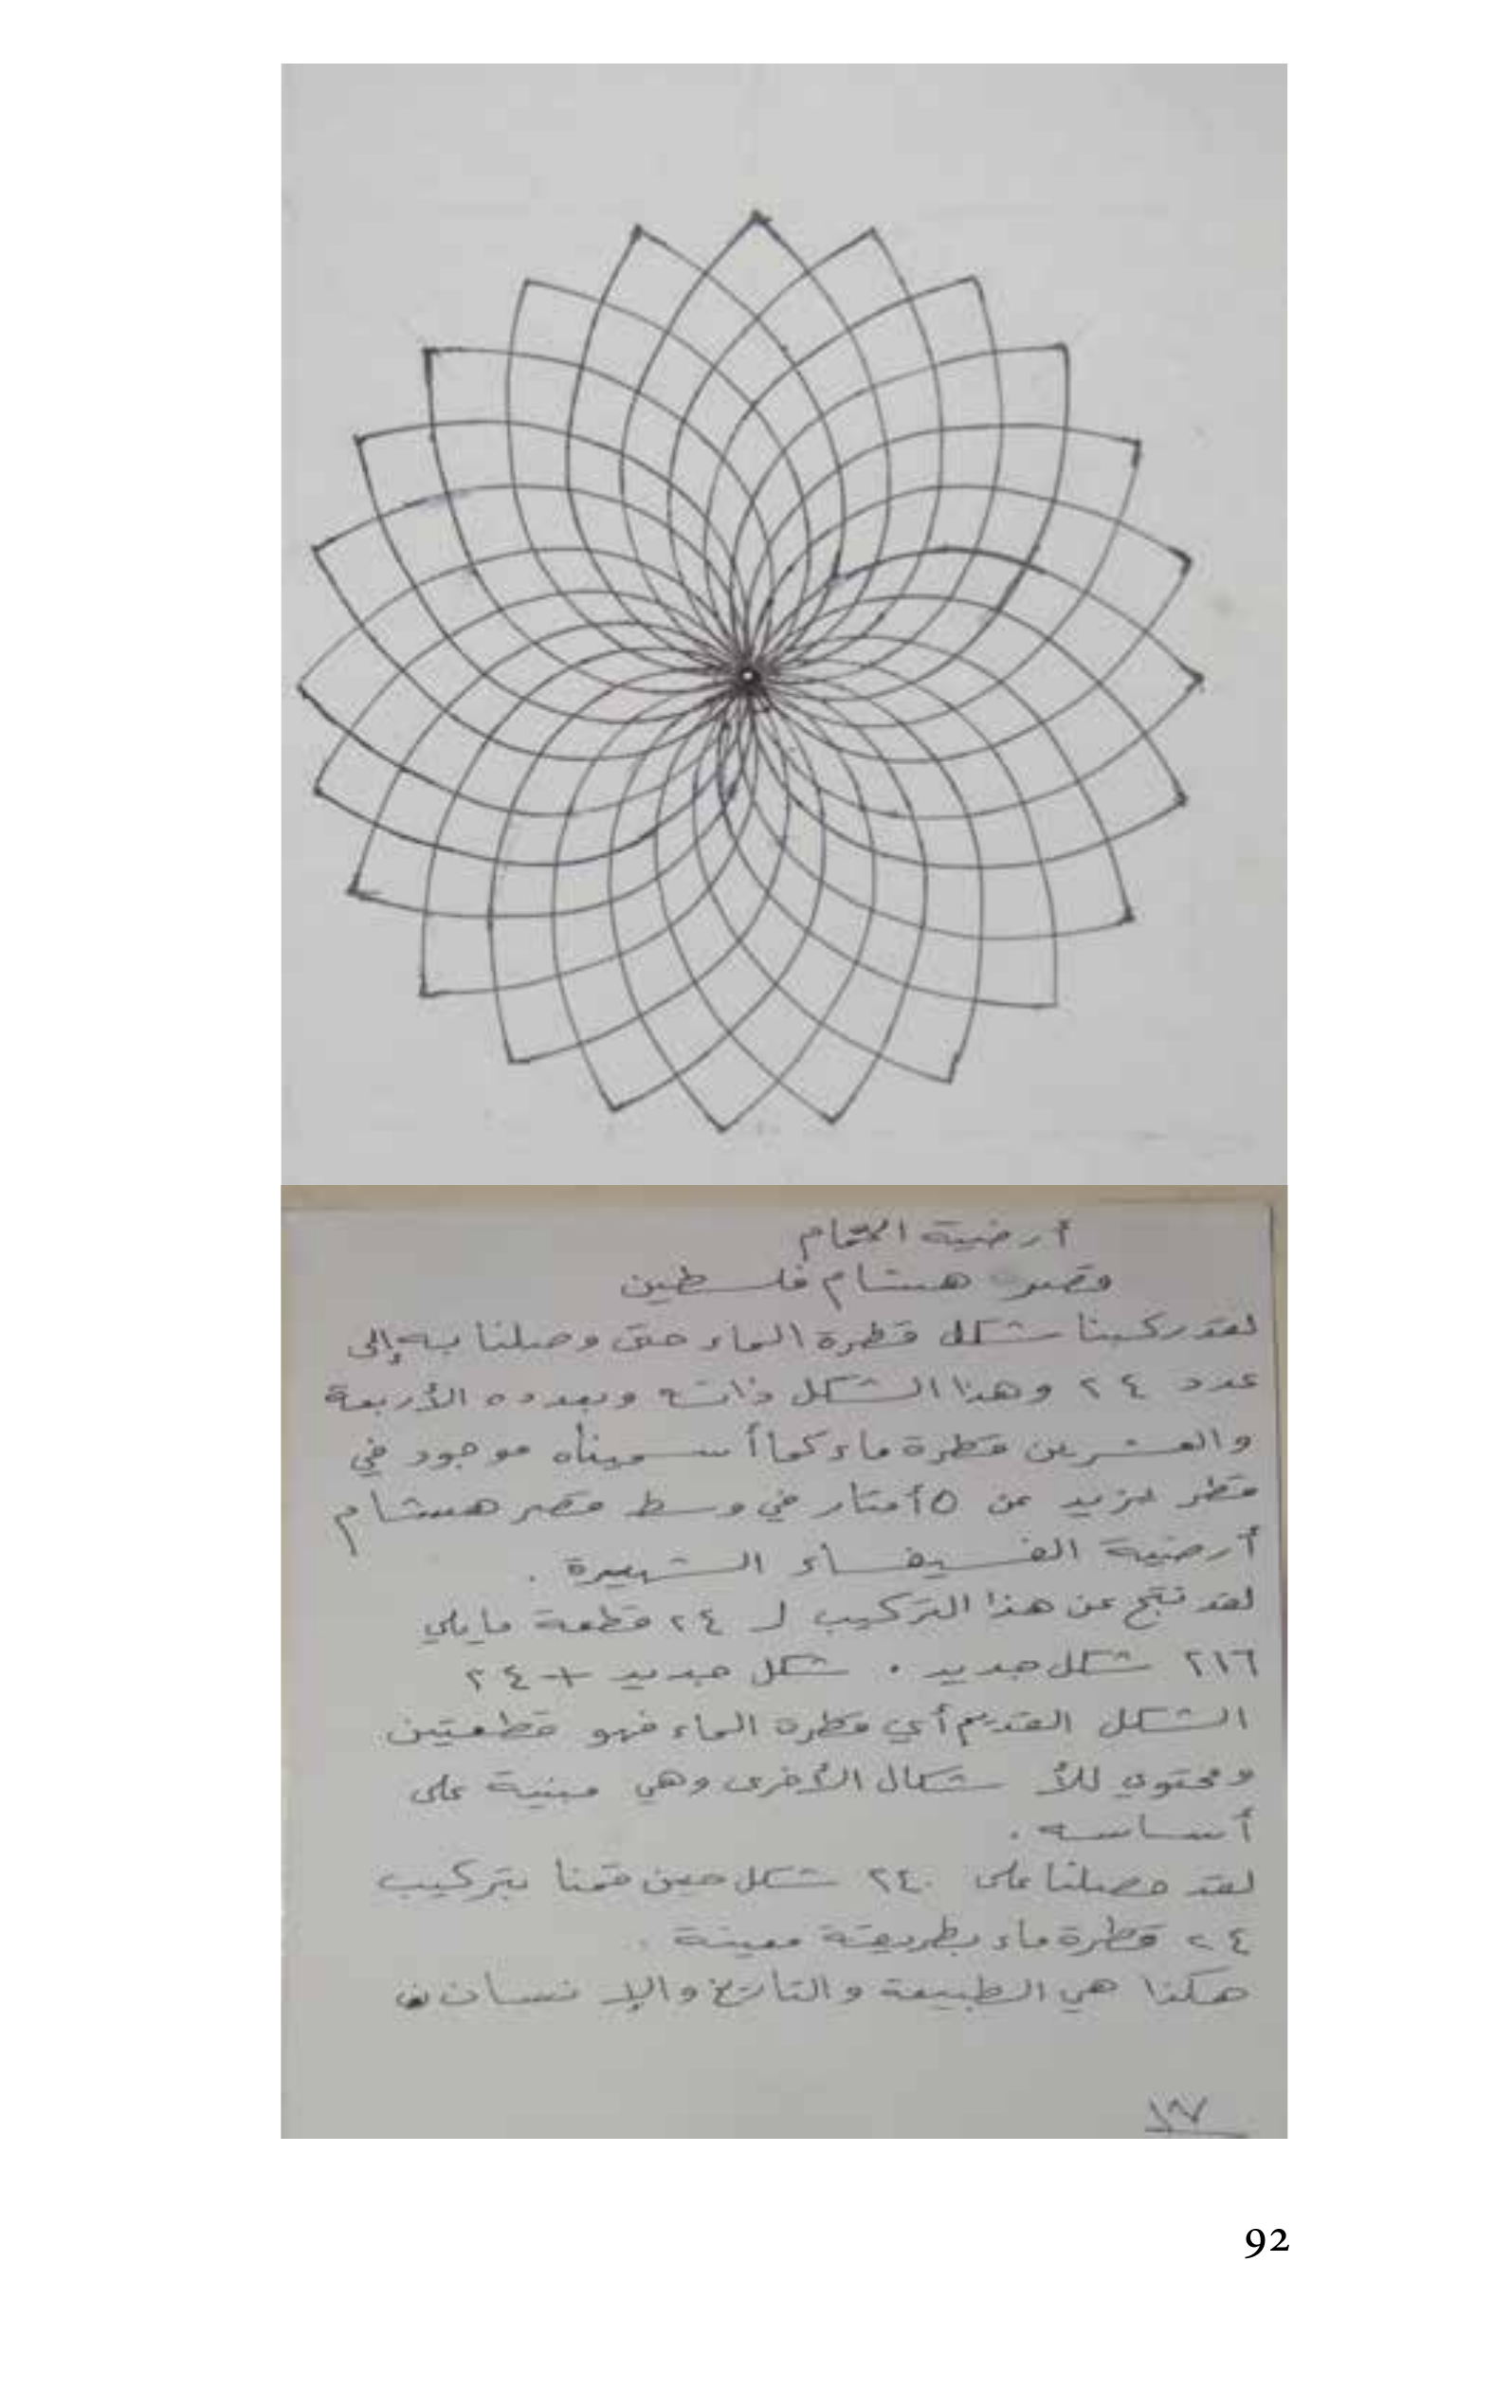 أرضية الحمام
قصر هشام فلسطين
لقد ركبنا شكل قطرة الماء حتى وصلنا به إلى
عدد ٢٤ وهذا الشكل ذاته وبعدده الأربعة
والعشرين قطرة ماء كما أسميناه موجود في
قطر يزيد عن ٥ أمتار في وسط قصر هشام
أرضية الفسيفساء الشهيرة .
لقد نتج عن هذا التركيب لـ ٢٤ قطعة ما يلي
٢١٦ شكل جديد . شكل جديد + ٢٤
الشكل القديم أي قطرة الماء فهو قطعتين
ومحتوي للأشكال الأخرى وهي مبنية على
أساسه .
لقد حصلنا على ٢٤٠ شكل حين قمنا بتركيب
٢٤ قطرة ماء بطريقة معينة .
هكذا هي الطبيعة والتاريخ والإنسان
92